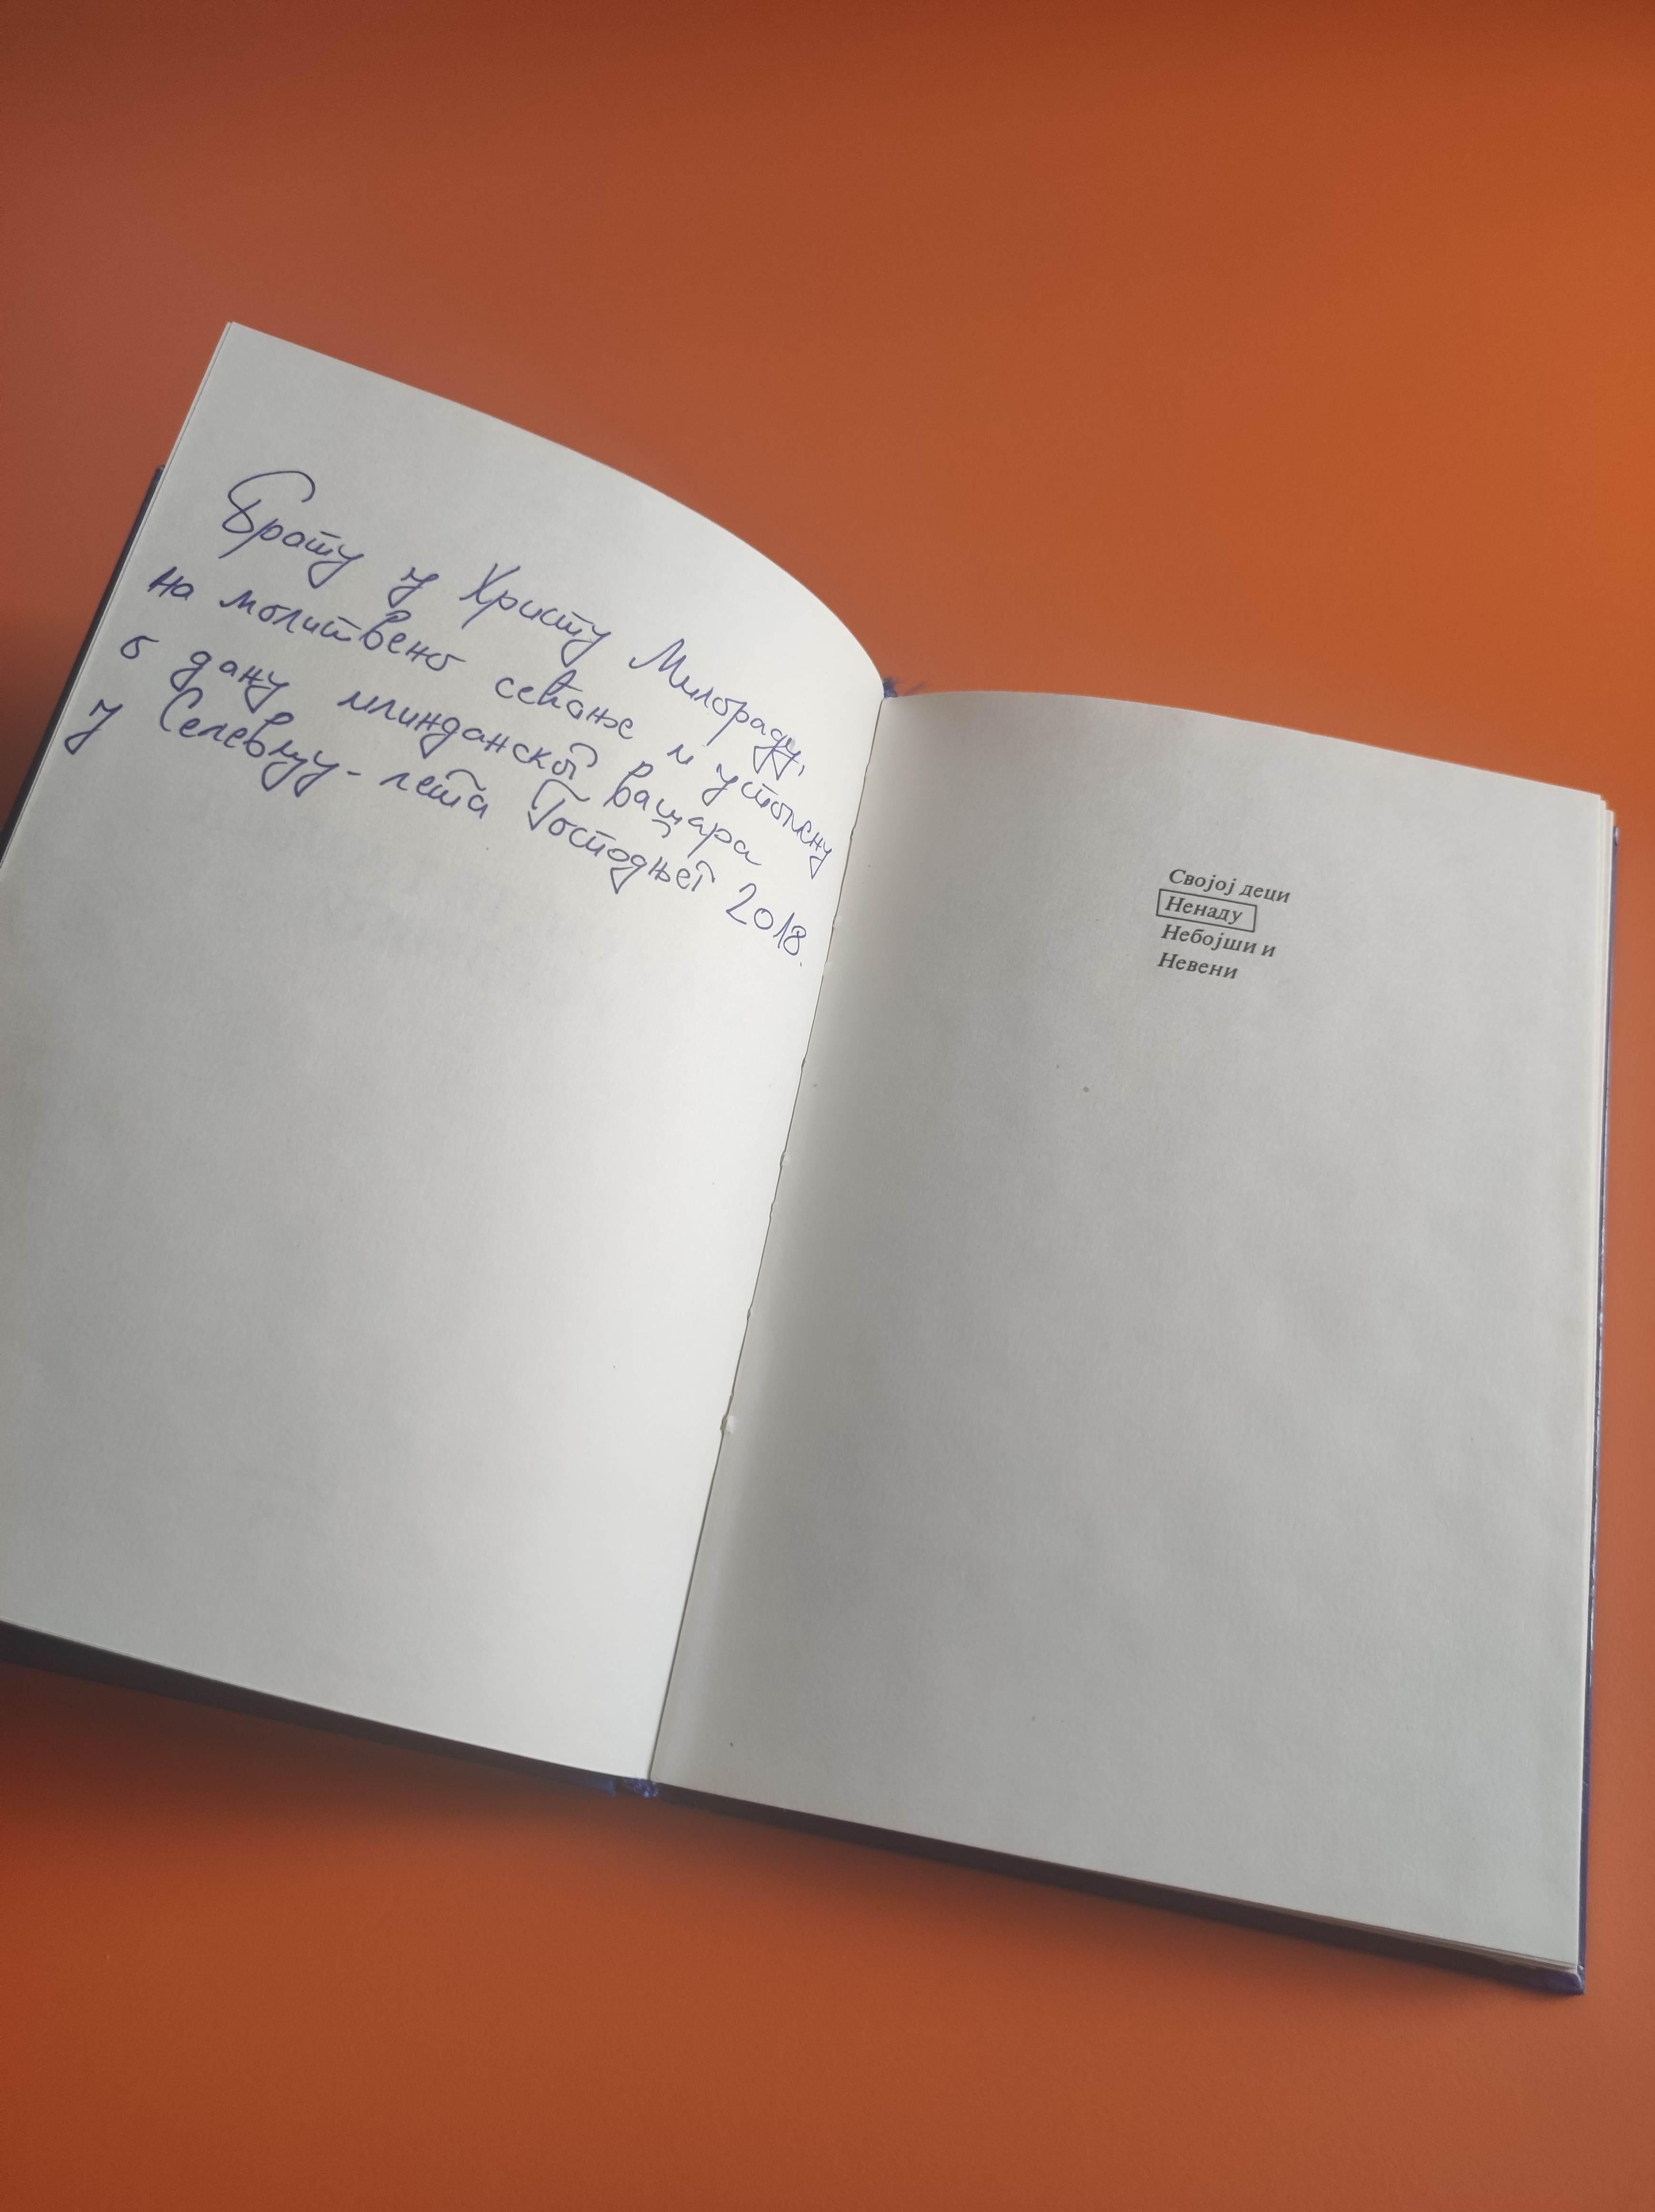 Брату у Христу Милораду,
на молитвено сећање и успомену
о дану илинданског вашара
у Селевцу - лета Господњег 2018.
Својој деци
Ненаду
Небојши и
Невени